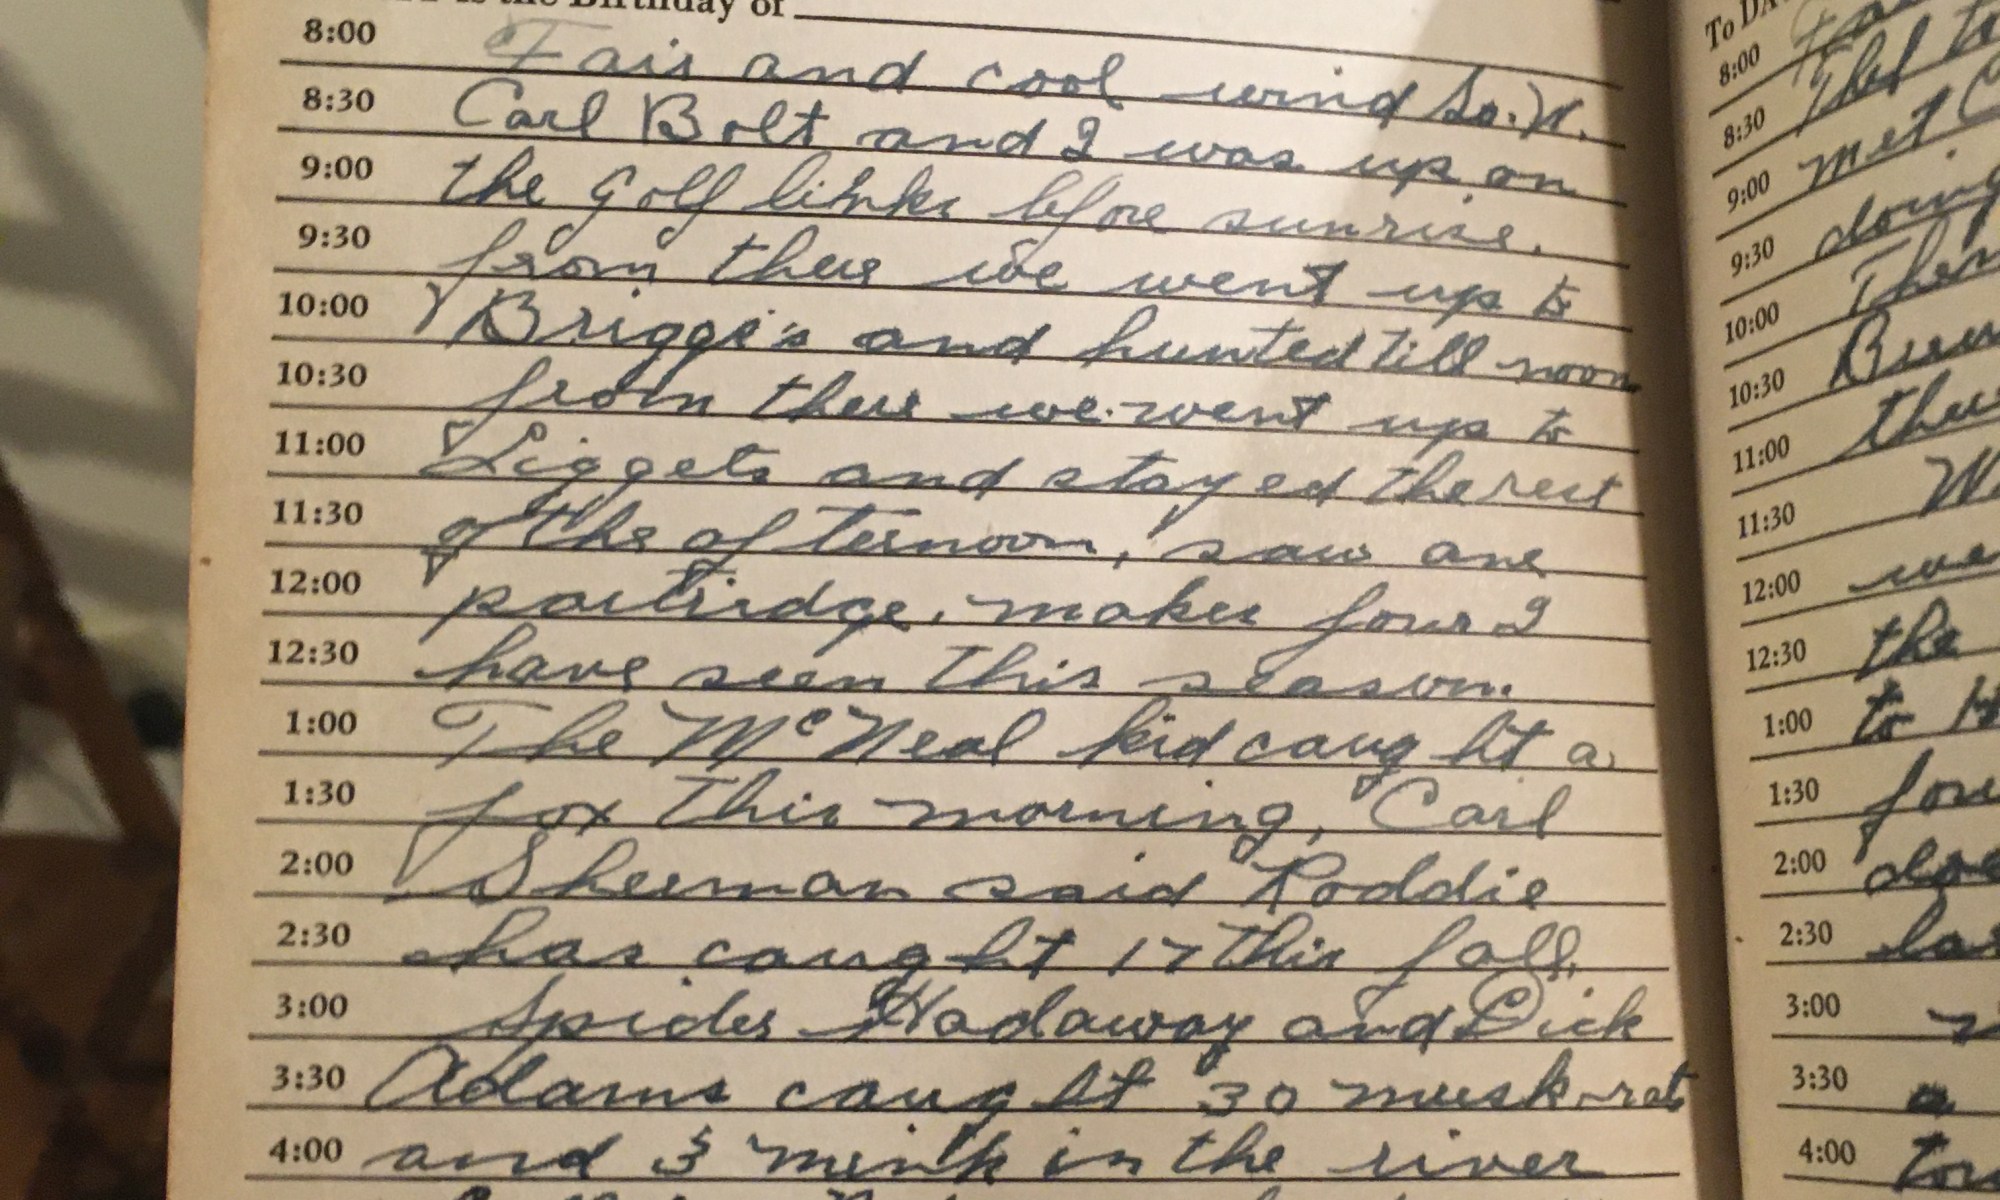 is the Birthday of
8:00 Fair and cool wind So. W.
8:30 Carl Bolt and I was up on
9:00 the golf links before sunrise.
9:30 from there we went up to
10:00 Briggs's and hunted till noon
10:30 from there we went up to
11:00 Liggets and stayed the rest
11:30 of the afternoon, saw one
12:00 partridge. makes four I
12:30 have seen this season.
1:00 The McNeal kid caught a
1:30 fox this morning, Carl
2:00 Sherman said Roddie
2:30 has caught 17 this fall.
3:00 Spider Hadaway and Dick
3:30 Adams caught 30 musk-rats
4:00 and 3 mink in the river
To DA
8:00
8:30
9:00 met
9:30 doing
10:00
10:30
11:00
11:30
12:00 we
12:30 the
1:00 to
1:30
2:00
2:30
3:00
3:30 a
4:00